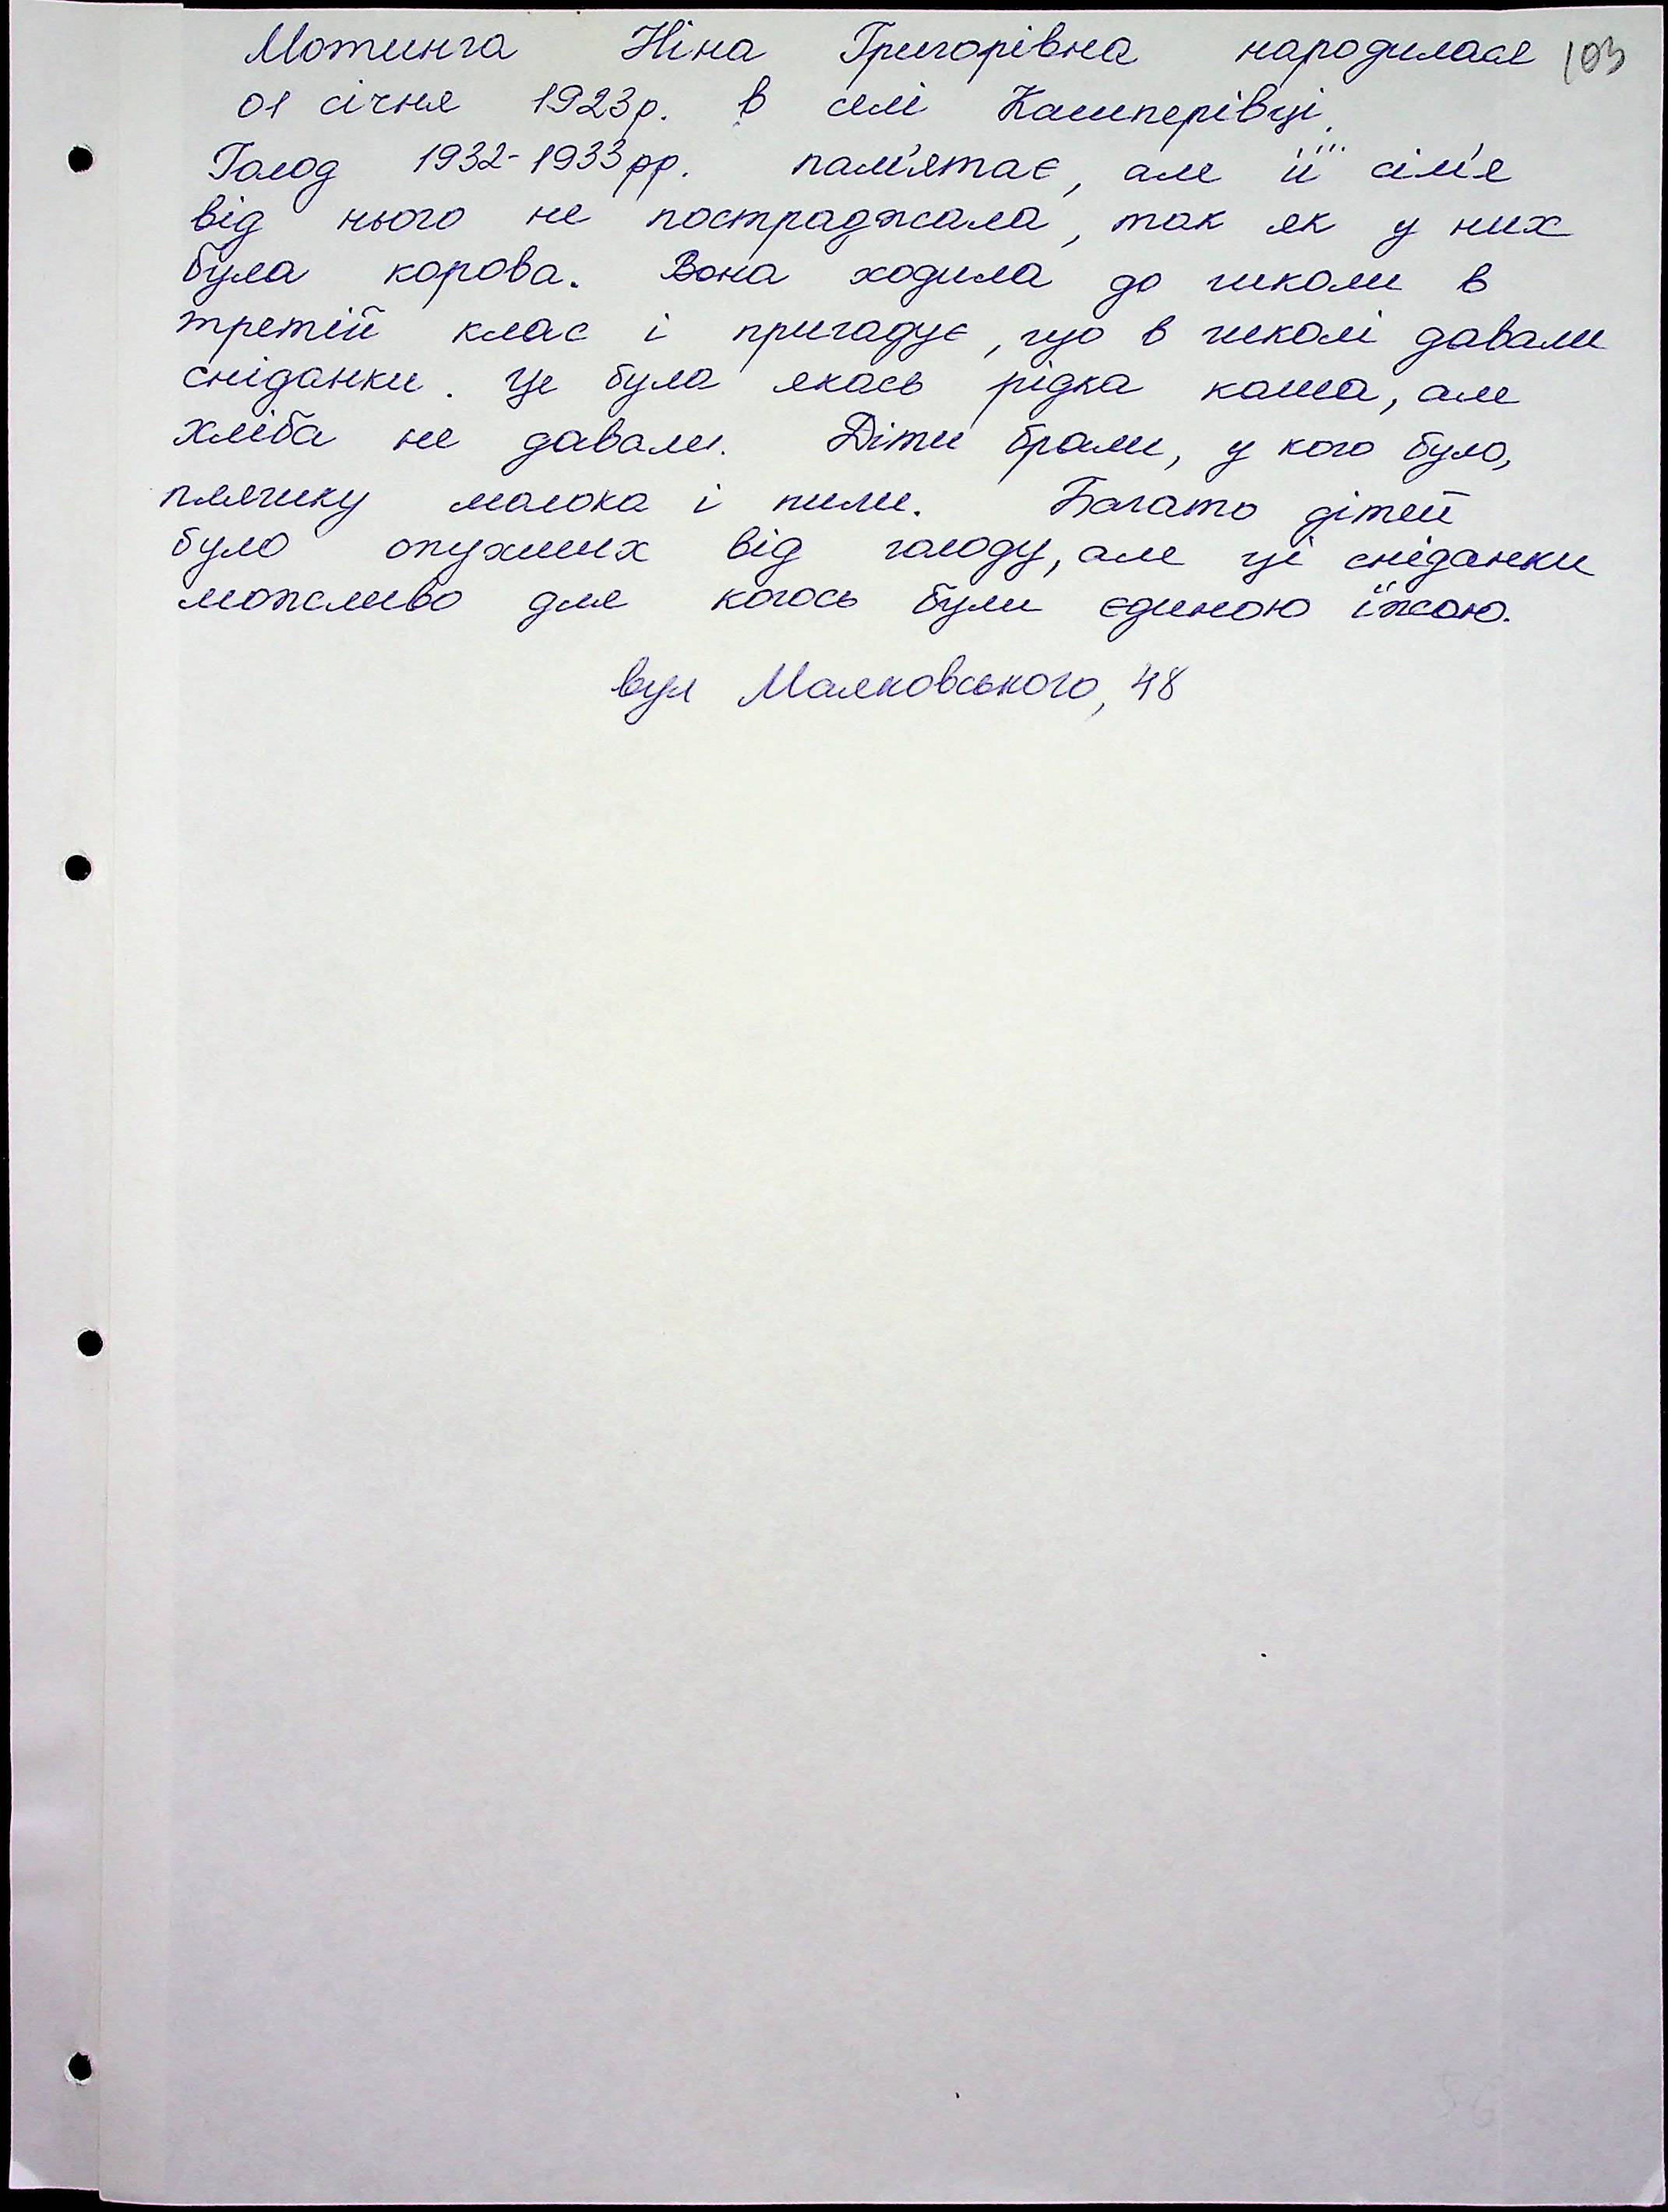 Мотинга Ніна Григорівна народилася 103
01 січня 1923р. в селі Кашперівці.
Голод 1932-1933рр. пам'ятає, але її сім'я
від нього не постраджала, так як у них
була корова. Вона ходила до школи в
третій клас і пригадує, що в школі давали
сніданки. Це була якась рідка каша, але
хліба не давали. Діти брали, у кого було,
пляшку молока і пили. Багато дітей
було опухших від голоду, але ці сніданки
можливо для когось були єдиною їжою.
вул Маяковського, 48